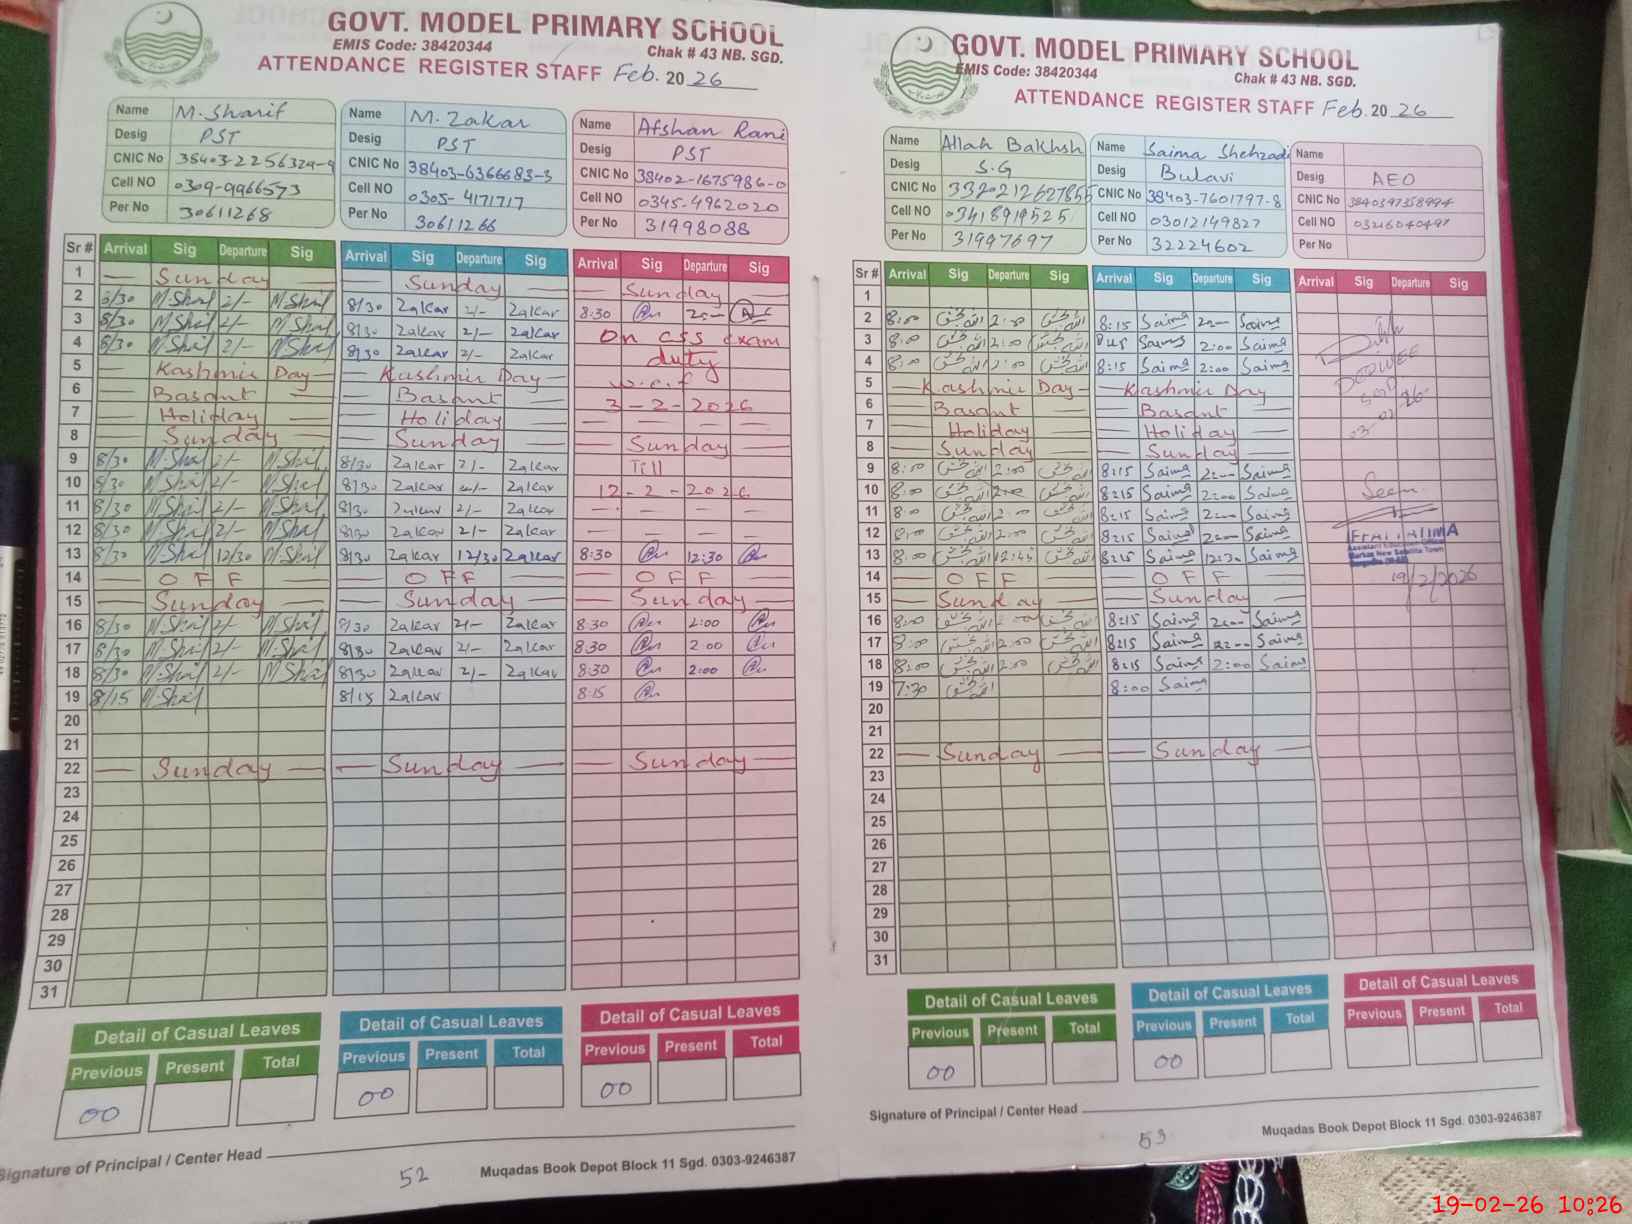 GOVT. MODEL PRIMARY SCHOOL
EMIS Code: 38420344
Chak # 43 NB. SGD.
ATTENDANCE REGISTER STAFF Feb. 2026
Name M. Sharif
Desig PST
CNIC No 38403-2256329-9
Cell NO 0309-9966573
Per No 30611268
Name M. Zakar
Desig PST
CNIC No 38403-6366683-3
Cell NO 0305-4171717
Per No 30611266
Name Afshan Rani
Desig PST
CNIC No 38402-1675986-0
Cell NO 0345-4962020
Per No 31998088
Sr # Arrival Sig Departure Sig Arrival Sig Departure Sig Arrival Sig Departure Sig
1 Sunday Sunday Sunday
2 8/30 M.Sharif 2/- M.Sharif 8/30 Zakar 2/- Zakar 8:30 2:00
3 8/30 M.Sharif 2/- M.Sharif 8/30 Zakar 2/- Zakar On CSS exam
4 8/30 M.Sharif 2/- M.Sharif 8/30 Zakar 2/- Zakar duty
5 Kashmir Day Kashmir Day w.e.f
6 Basant Basant 3-2-2026
7 Holiday Holiday
8 Sunday Sunday Sunday
9 8/30 M.Sharif 2/- M.Sharif 8/30 Zakar 2/- Zakar Till
10 8/30 M.Sharif 2/- M.Sharif 8/30 Zakar 2/- Zakar 12-2-2026
11 8/30 M.Sharif 2/- M.Sharif 8/30 Zakar 2/- Zakar
12 8/30 M.Sharif 2/- M.Sharif 8/30 Zakar 2/- Zakar
13 8/30 M.Sharif 12/30 M.Sharif 8/30 Zakar 12/30 Zakar 8:30 12:30
14 OFF OFF OFF
15 Sunday Sunday Sunday
16 8/30 M.Sharif 2/- M.Sharif 8/30 Zakar 2/- Zakar 8:30 2:00
17 8/30 M.Sharif 2/- M.Sharif 8/30 Zakar 2/- Zakar 8:30 2:00
18 8/30 M.Sharif 2/- M.Sharif 8/30 Zakar 2/- Zakar 8:30 2:00
19 8/15 M.Sharif 8/15 Zakar 8:15
20
21
22 Sunday Sunday Sunday
23
24
25
26
27
28
29
30
31
Detail of Casual Leaves Detail of Casual Leaves Detail of Casual Leaves
Previous Present Total Previous Present Total Previous Present Total
00 00 00
Signature of Principal / Center Head
52
Muqadas Book Depot Block 11 Sgd. 0303-9246387
GOVT. MODEL PRIMARY SCHOOL
EMIS Code: 38420344
Chak # 43 NB. SGD.
ATTENDANCE REGISTER STAFF Feb. 2026
Name Allah Bakhsh
Desig S.G
CNIC No 3320212627855
Cell NO 03418919525
Per No 31997697
Name Saima Shehzadi
Desig Bulavi
CNIC No 38403-7601797-8
Cell NO 03012149827
Per No 32224602
Name
Desig AEO
CNIC No 3840397358994
Cell NO 03216040497
Per No
Sr # Arrival Sig Departure Sig Arrival Sig Departure Sig Arrival Sig Departure Sig
1
2 8:00 اللہ بخش 2:00 اللہ بخش 8:15 Saima 2:00 Saima
3 8:00 اللہ بخش 2:00 اللہ بخش 8:15 Saima 2:00 Saima
4 8:00 اللہ بخش 2:00 اللہ بخش 8:15 Saima 2:00 Saima
5 Kashmir Day Kashmir Day
6 Basant Basant
7 Holiday Holiday
8 Sunday Sunday
9 8:00 اللہ بخش 2:00 اللہ بخش 8:15 Saima 2:00 Saima
10 8:00 اللہ بخش 2:00 اللہ بخش 8:15 Saima 2:00 Saima
11 8:00 اللہ بخش 2:00 اللہ بخش 8:15 Saima 2:00 Saima
12 8:00 اللہ بخش 2:00 اللہ بخش 8:15 Saima 2:00 Saima
13 8:00 اللہ بخش 12:45 اللہ بخش 8:15 Saima 12:30 Saima
14 OFF OFF
15 Sunday Sunday
16 8:00 اللہ بخش 2:00 اللہ بخش 8:15 Saima 2:00 Saima
17 8:00 اللہ بخش 2:00 اللہ بخش 8:15 Saima 2:00 Saima
18 8:00 اللہ بخش 2:00 اللہ بخش 8:15 Saima 2:00 Saima
19 7:30 اللہ بخش 8:00 Saima
20
21
22 Sunday Sunday
23
24
25
26
27
28
29
30
31
Seen
19/2/2026
Detail of Casual Leaves Detail of Casual Leaves Detail of Casual Leaves
Previous Present Total Previous Present Total Previous Present Total
00 00
Signature of Principal / Center Head
53
Muqadas Book Depot Block 11 Sgd. 0303-9246387
19-02-26 10:26